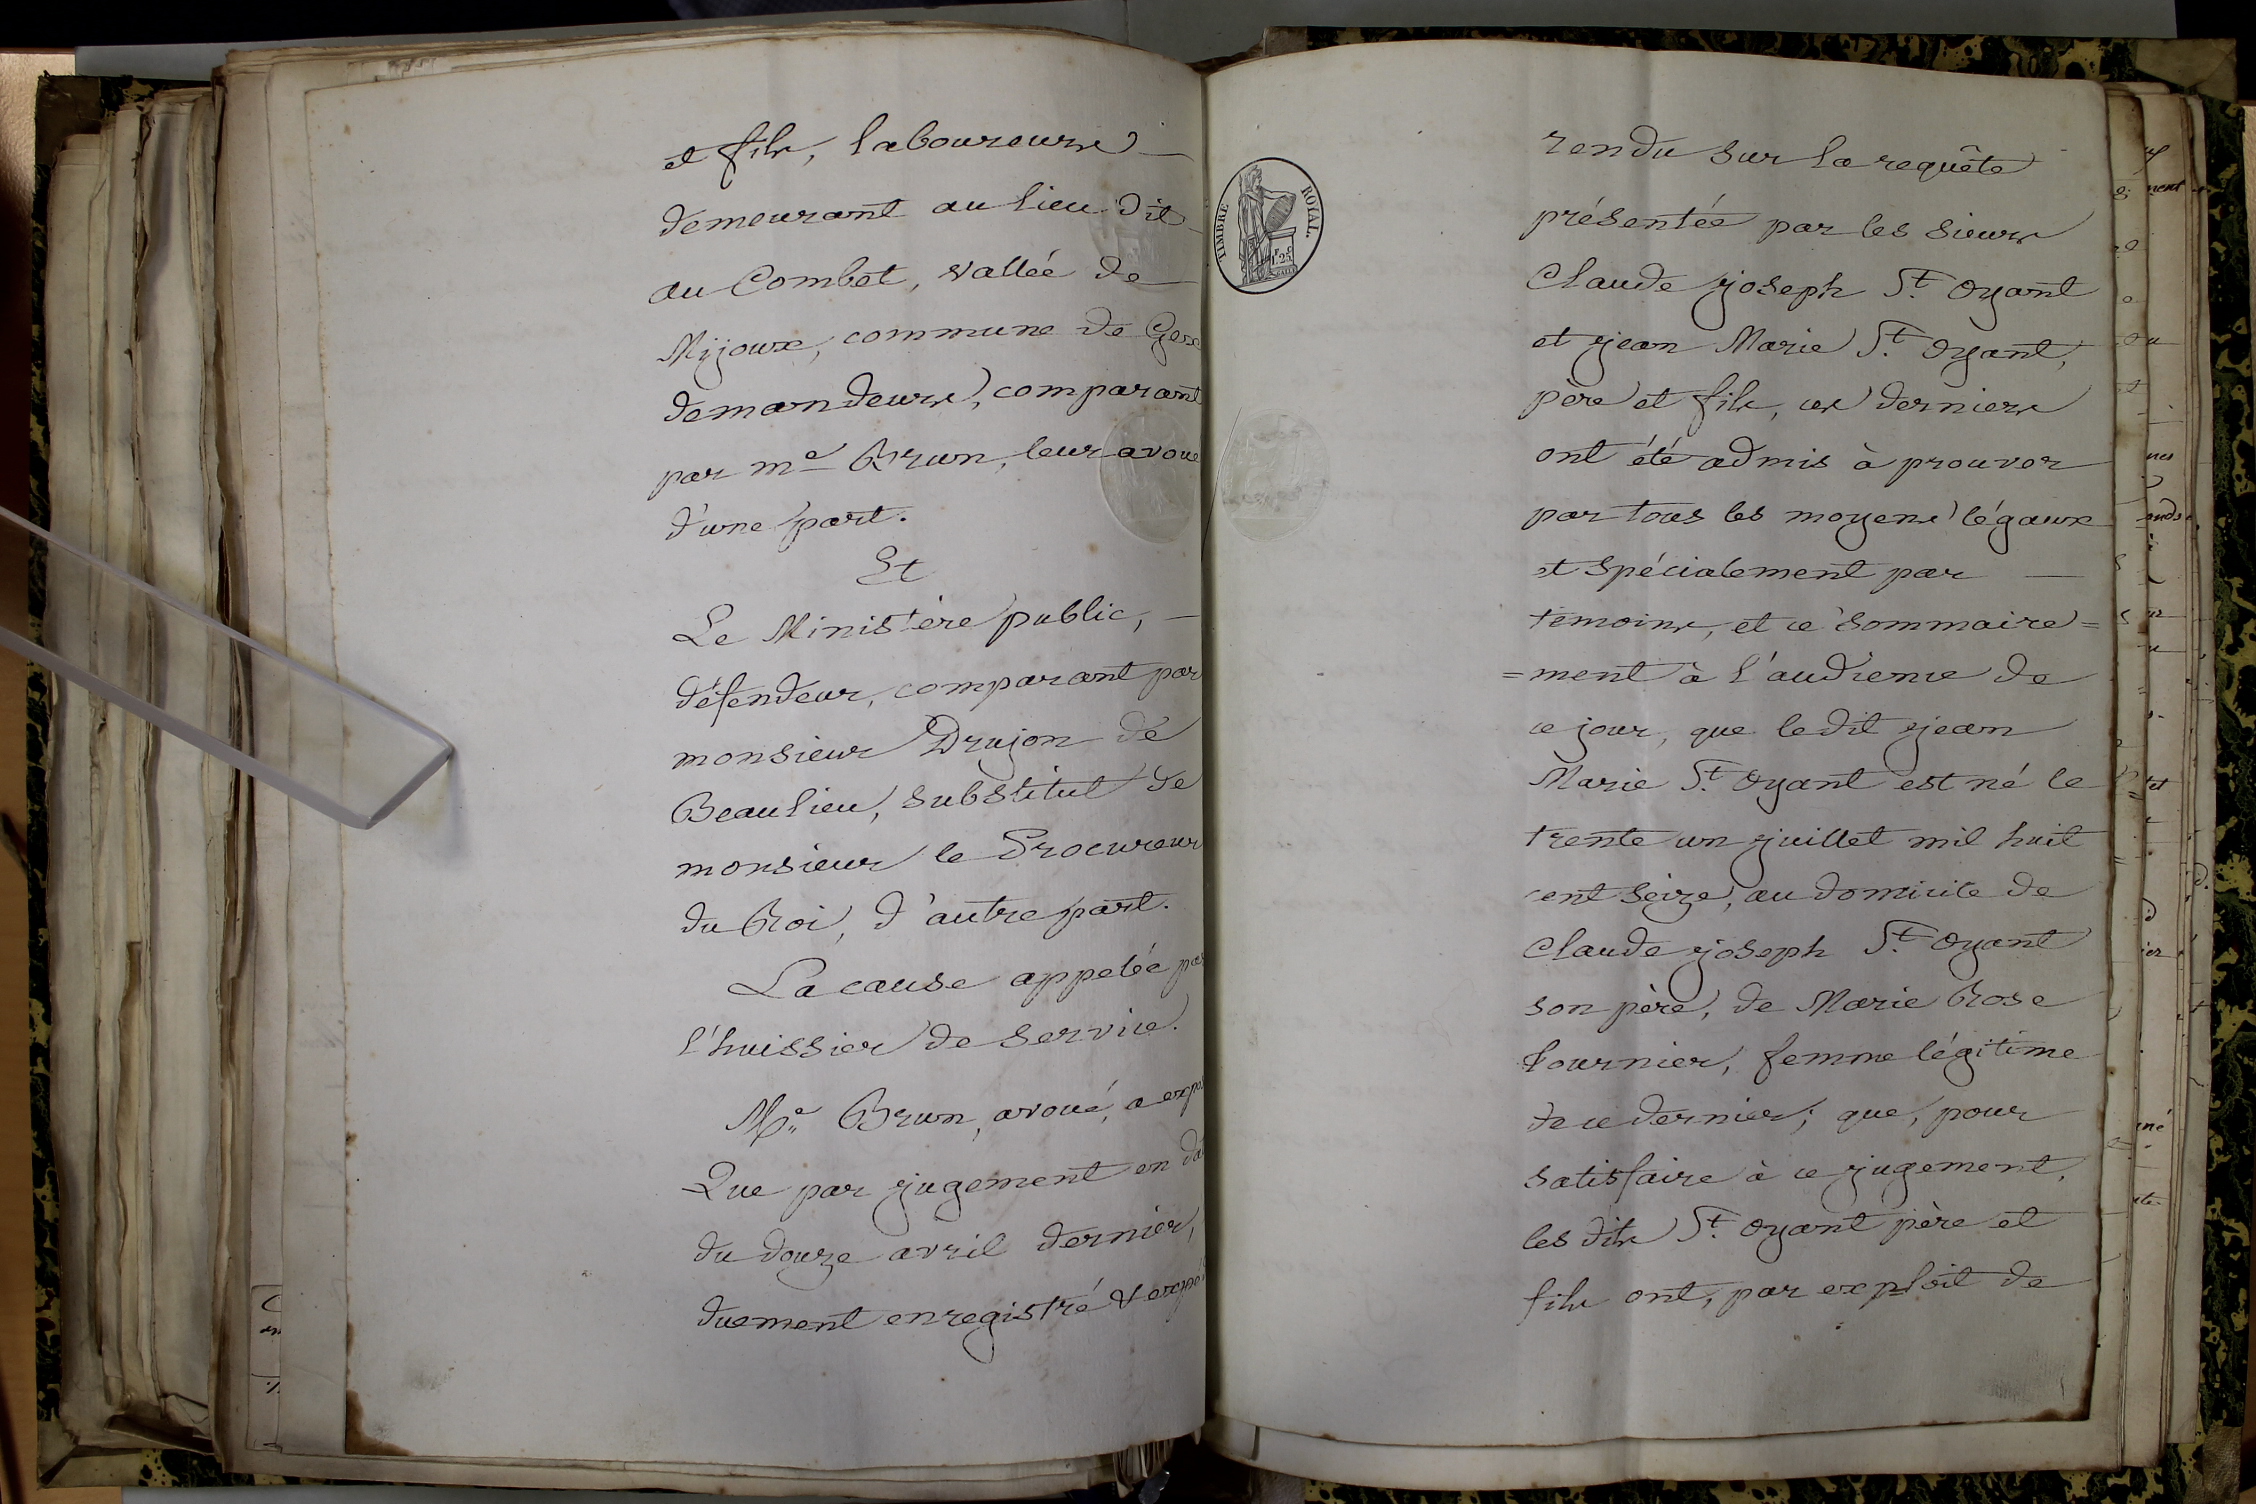 et fils, laboureurs
demeurant au lieu dit
au Combet, vallée de
Mijoux, commune de Gex
demandeurs, comparant
par me Brun, leur avoué
d'une part.
Et
Le Ministère public,
défendeur, comparant par
monsieur Drujon de
Beaulieu, substitut de
monsieur le Procureur
du Roi, d'autre part.
La cause appelée par
l'huissier de service.
Me Brun, avoué, a expo
Que par jugement en dat
du douze avril dernier,
duement enregistré & expé
TIMBRE ROYAL.
1F. 25c
rendu sur la requête
présentée par les sieurs
Claude joseph St. Oyant
et jean Marie St. Oyant,
père et fils, ces derniers
ont été admis à prouver
par tous les moyens légaux
et spécialement par
témoins, et ce sommaire=
=ment à l'audience de
ce jour, que le dit jean
Marie St. Oyant est né le
trente un juillet mil huit
cent seize, au domicile de
Claude joseph St. Oyant
son père, de Marie Rose
Fournier, femme légitime
de ce dernier; que, pour
satisfaire à ce jugement,
les dits St. Oyant père et
fils ont, par exploit de